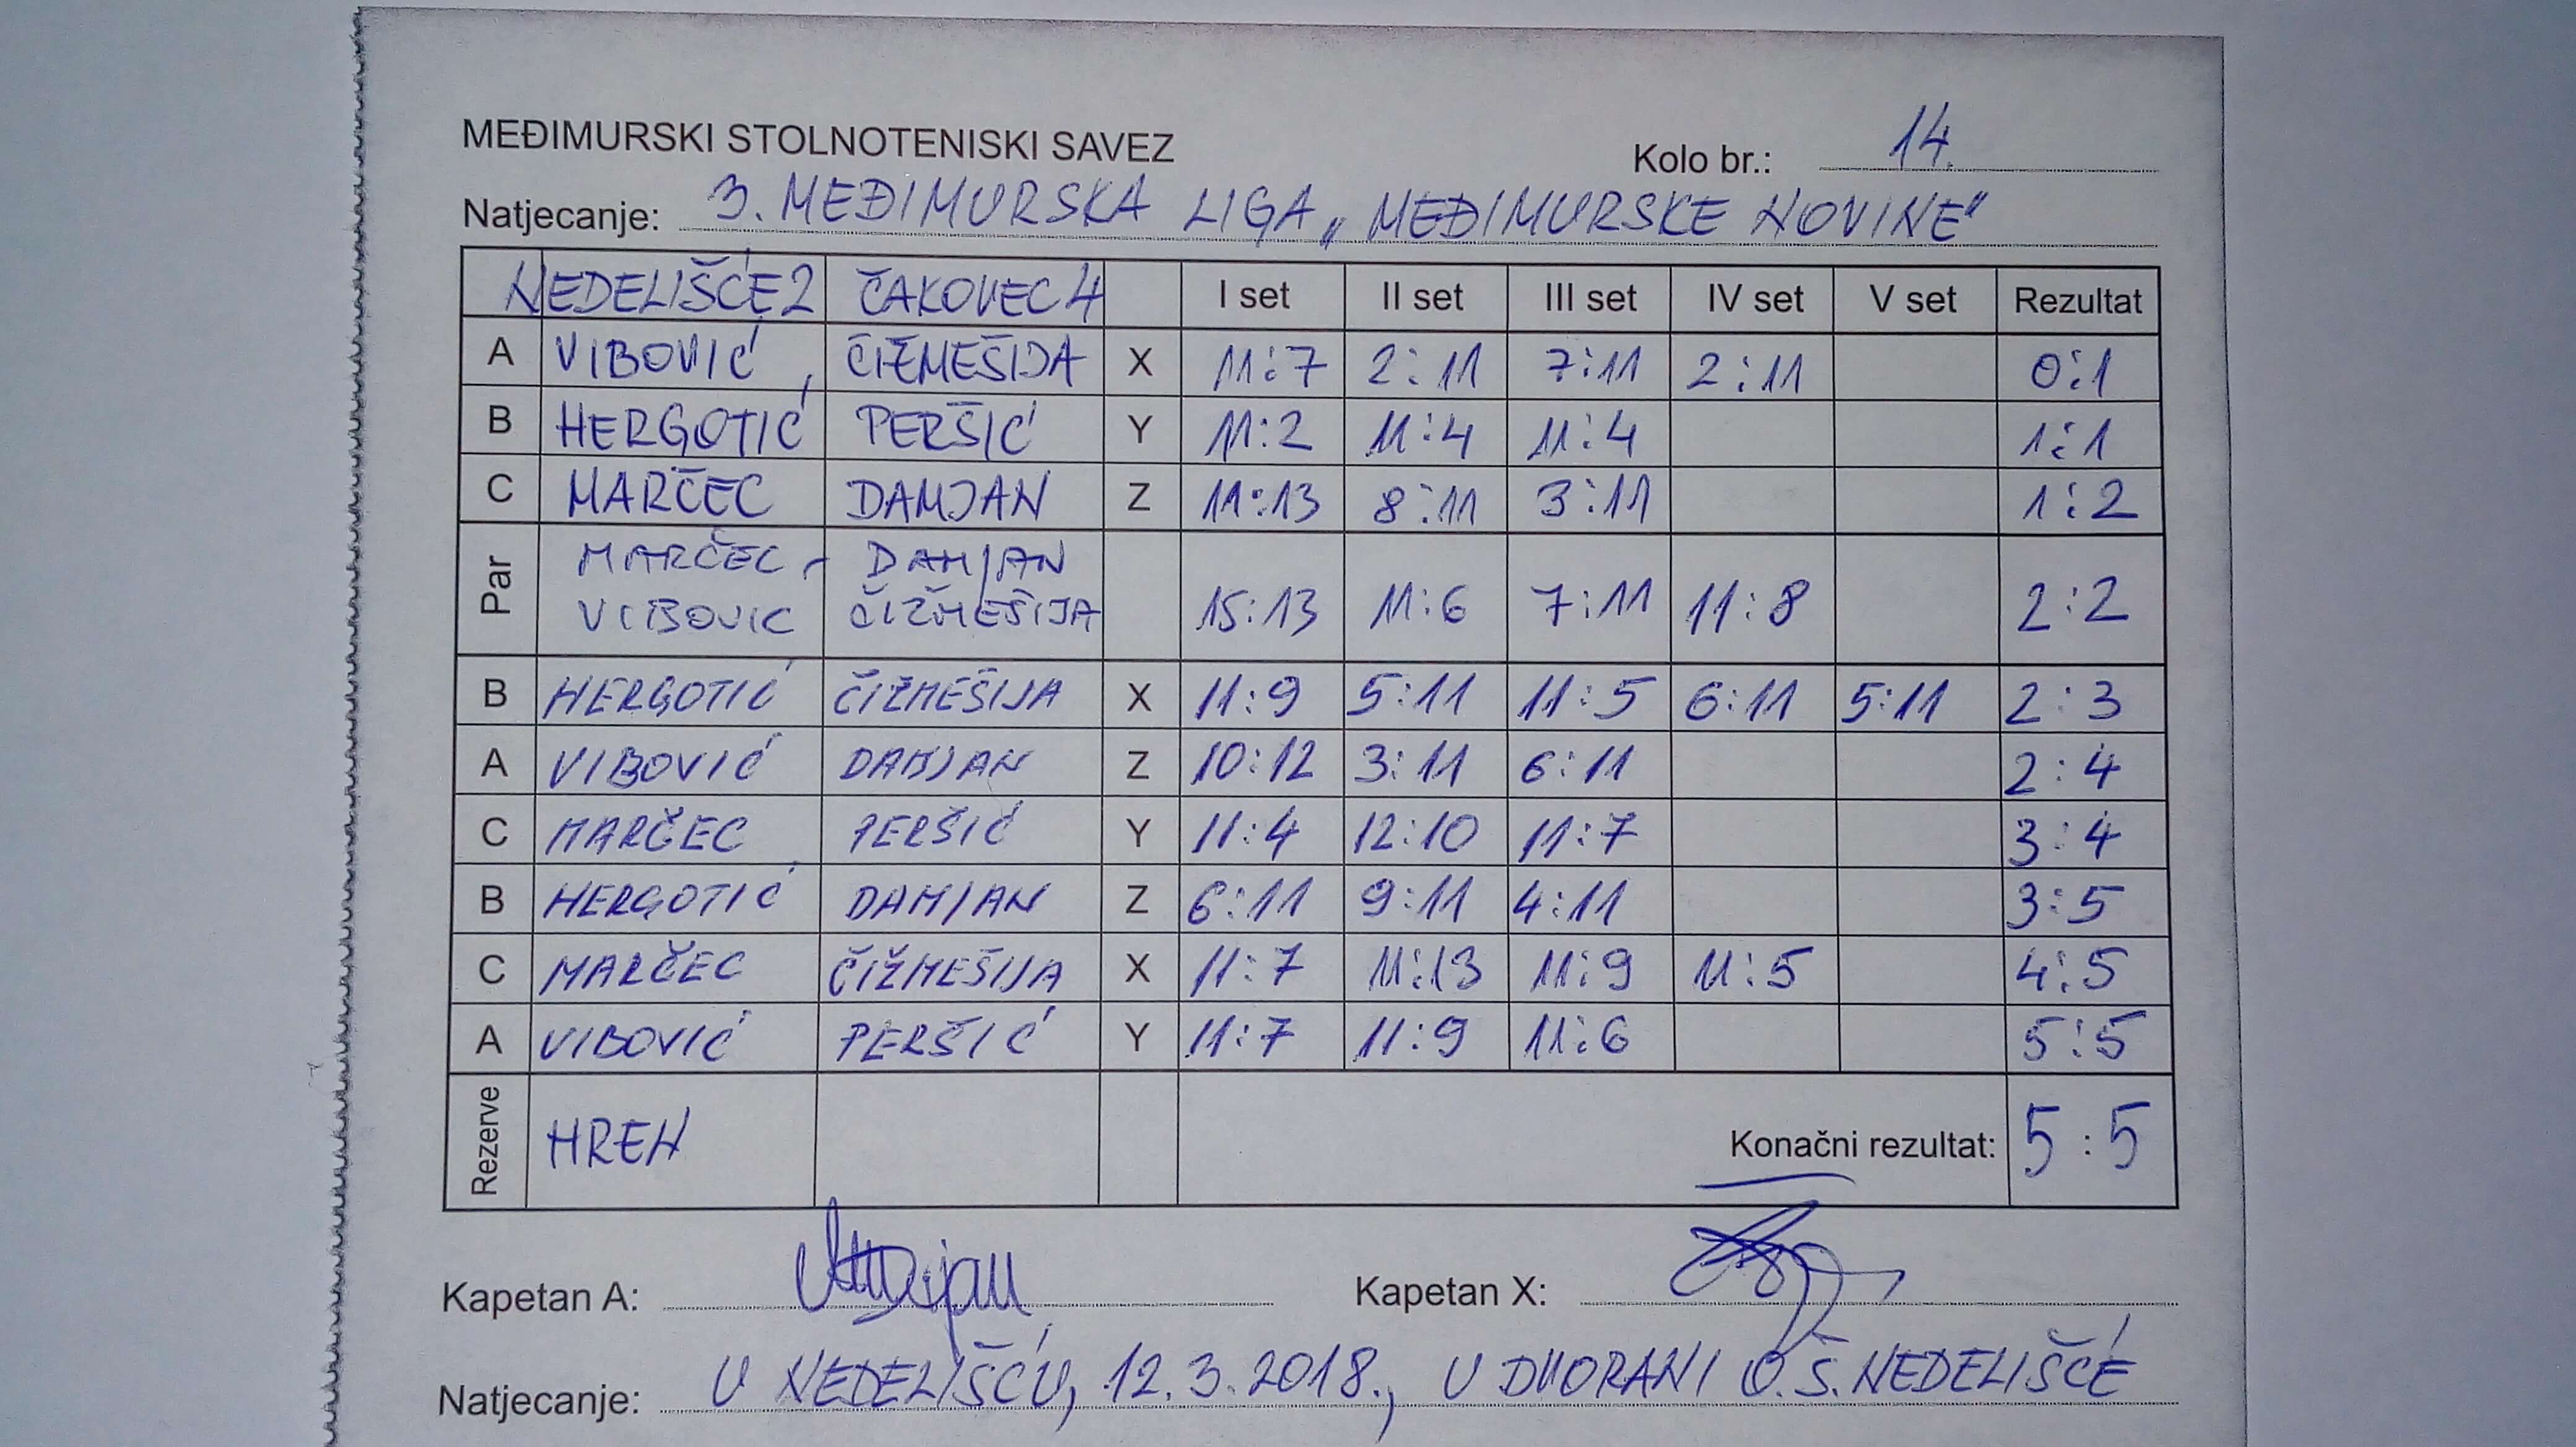 MEĐIMURSKI STOLNOTENISKI SAVEZ
Kolo br.: 14.
Natjecanje: 3. MEĐIMURSKA LIGA „MEĐIMURSKE NOVINE"
NEDELIŠĆE 2 ČAKOVEC 4 I set II set III set IV set V set Rezultat
A VIBOVIĆ ČIŽMEŠIJA X 11:7 2:11 7:11 2:11 0:1
B HERGOTIĆ PERŠIĆ Y 11:2 11:4 11:4 1:1
C MARČEC DAMJAN Z 11:13 8:11 3:11 1:2
Par MARČEC - VIBOVIC DAMJAN ČIŽMEŠIJA 15:13 11:6 7:11 11:8 2:2
B HERGOTIĆ ČIŽMEŠIJA X 11:9 5:11 11:5 6:11 5:11 2:3
A VIBOVIĆ DAMJAN Z 10:12 3:11 6:11 2:4
C MARČEC PERŠIĆ Y 11:4 12:10 11:7 3:4
B HERGOTIĆ DAMJAN Z 6:11 9:11 4:11 3:5
C MARČEC ČIŽMEŠIJA X 11:7 11:13 11:9 11:5 4:5
A VIBOVIĆ PERŠIĆ Y 11:7 11:9 11:6 5:5
Rezerve HREN Konačni rezultat: 5:5
Kapetan A: Kapetan X:
Natjecanje: U NEDELIŠĆU, 12.3.2018., U DVORANI O.Š. NEDELIŠĆE